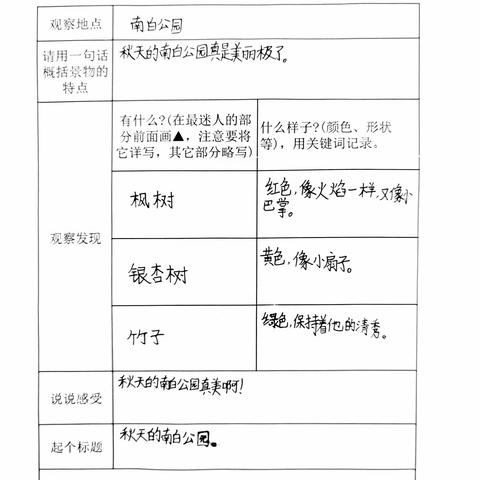 观察地点
南白公园
请用一句话
概括景物的
特点
秋天的南白公园真是美丽极了。
观察发现
有什么?(在最迷人的部
分前面画▲,注意要将
它详写,其它部分略写)
什么样子?(颜色、形状
等),用关键词记录。
枫树
红色,像火焰一样,又像小
巴掌。
银杏树
黄色,像小扇子。
竹子
绿色,保持着他的清秀。
说说感受
秋天的南白公园真美啊!
起个标题
秋天的南白公园。